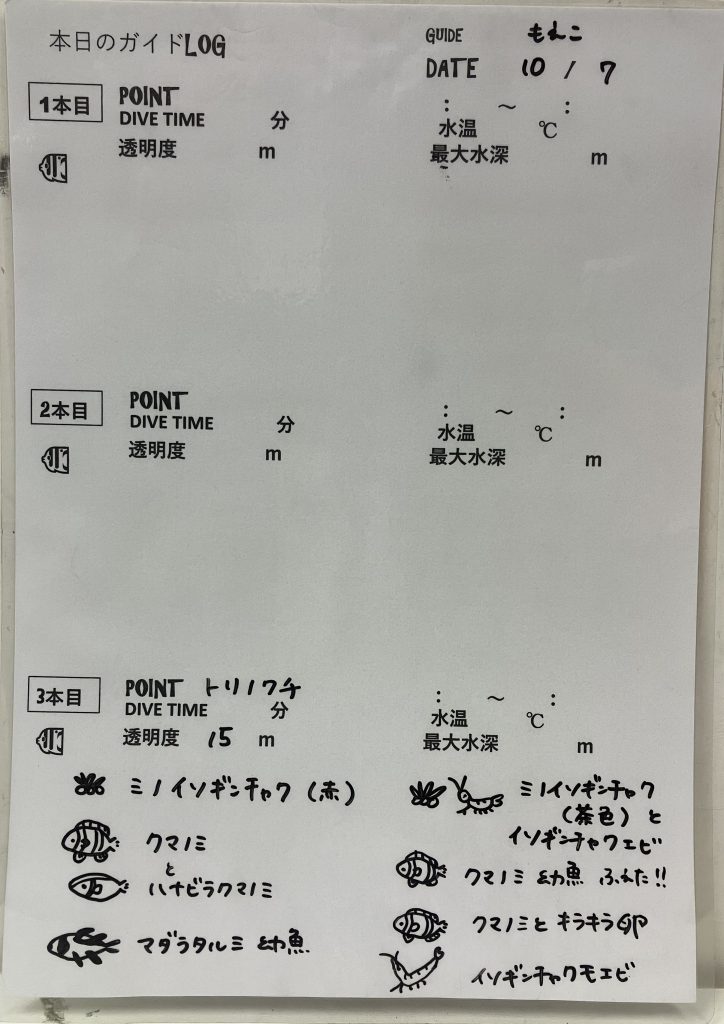 本日のガイドLOG
GUIDE もえこ
DATE 10 / 7
1本目 POINT
DIVE TIME 分 : ～ :
透明度 m 水温 ℃
最大水深 m
2本目 POINT
DIVE TIME 分 : ～ :
透明度 m 水温 ℃
最大水深 m
3本目 POINT トリノクチ
DIVE TIME 分 : ～ :
透明度 15 m 水温 ℃
最大水深 m
ミノイソギンチャク (赤)
クマノミ
と
ハナビラクマノミ
マダラタルミ 幼魚
ミノイソギンチャク
(茶色) と
イソギンチャクエビ
クマノミ 幼魚 ふえた!!
クマノミと キラキラ卵
イソギンチャクモエビ